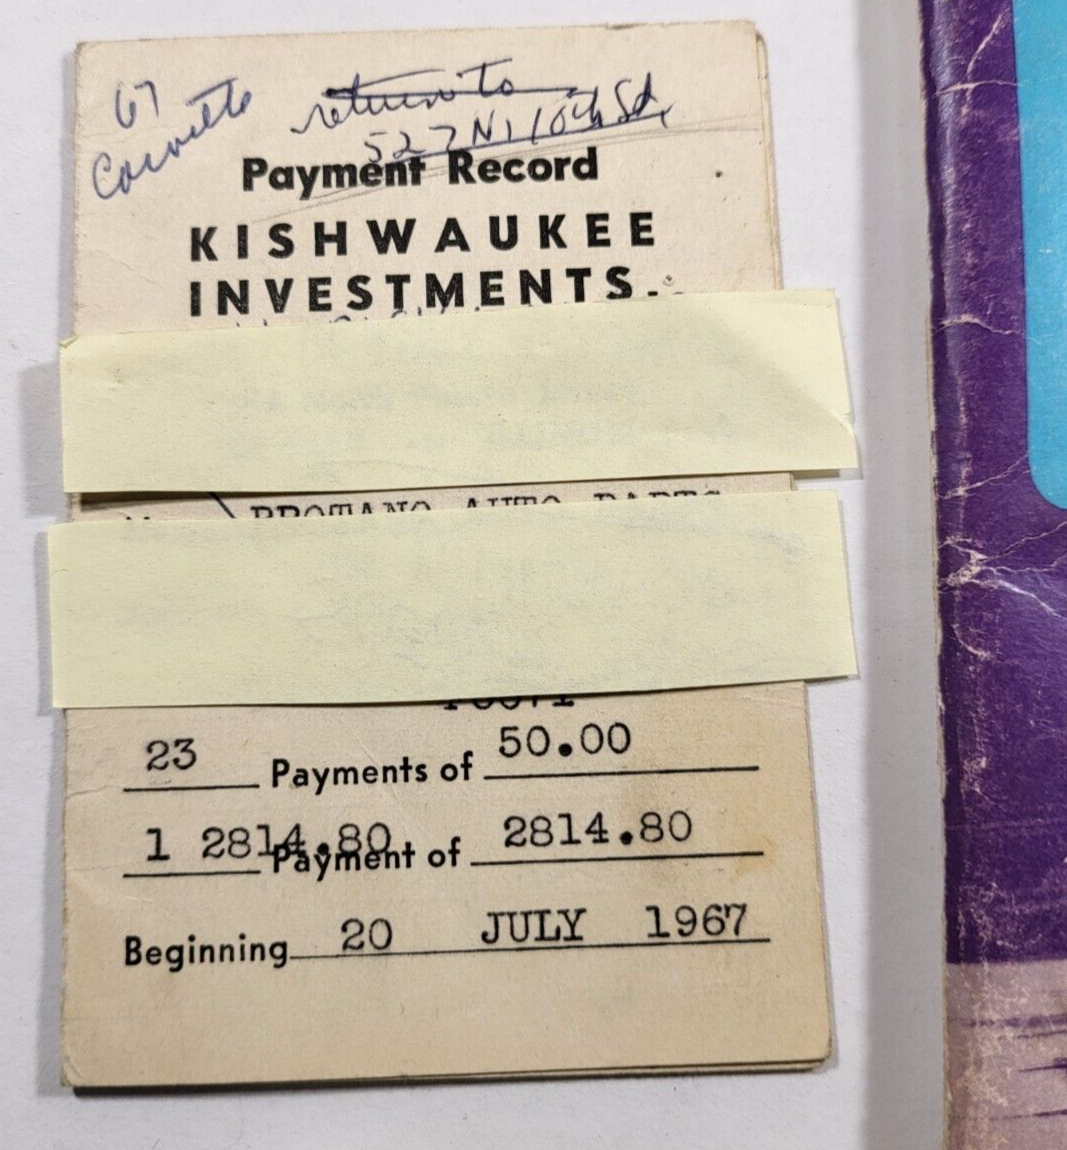 67
Corvette
return to
527 N. 10th St.
Payment Record
KISHWAUKEE
INVESTMENTS.
AUTO PARTS
23 Payments of 50.00
1 2814.80 Payment of 2814.80
Beginning 20 JULY 1967